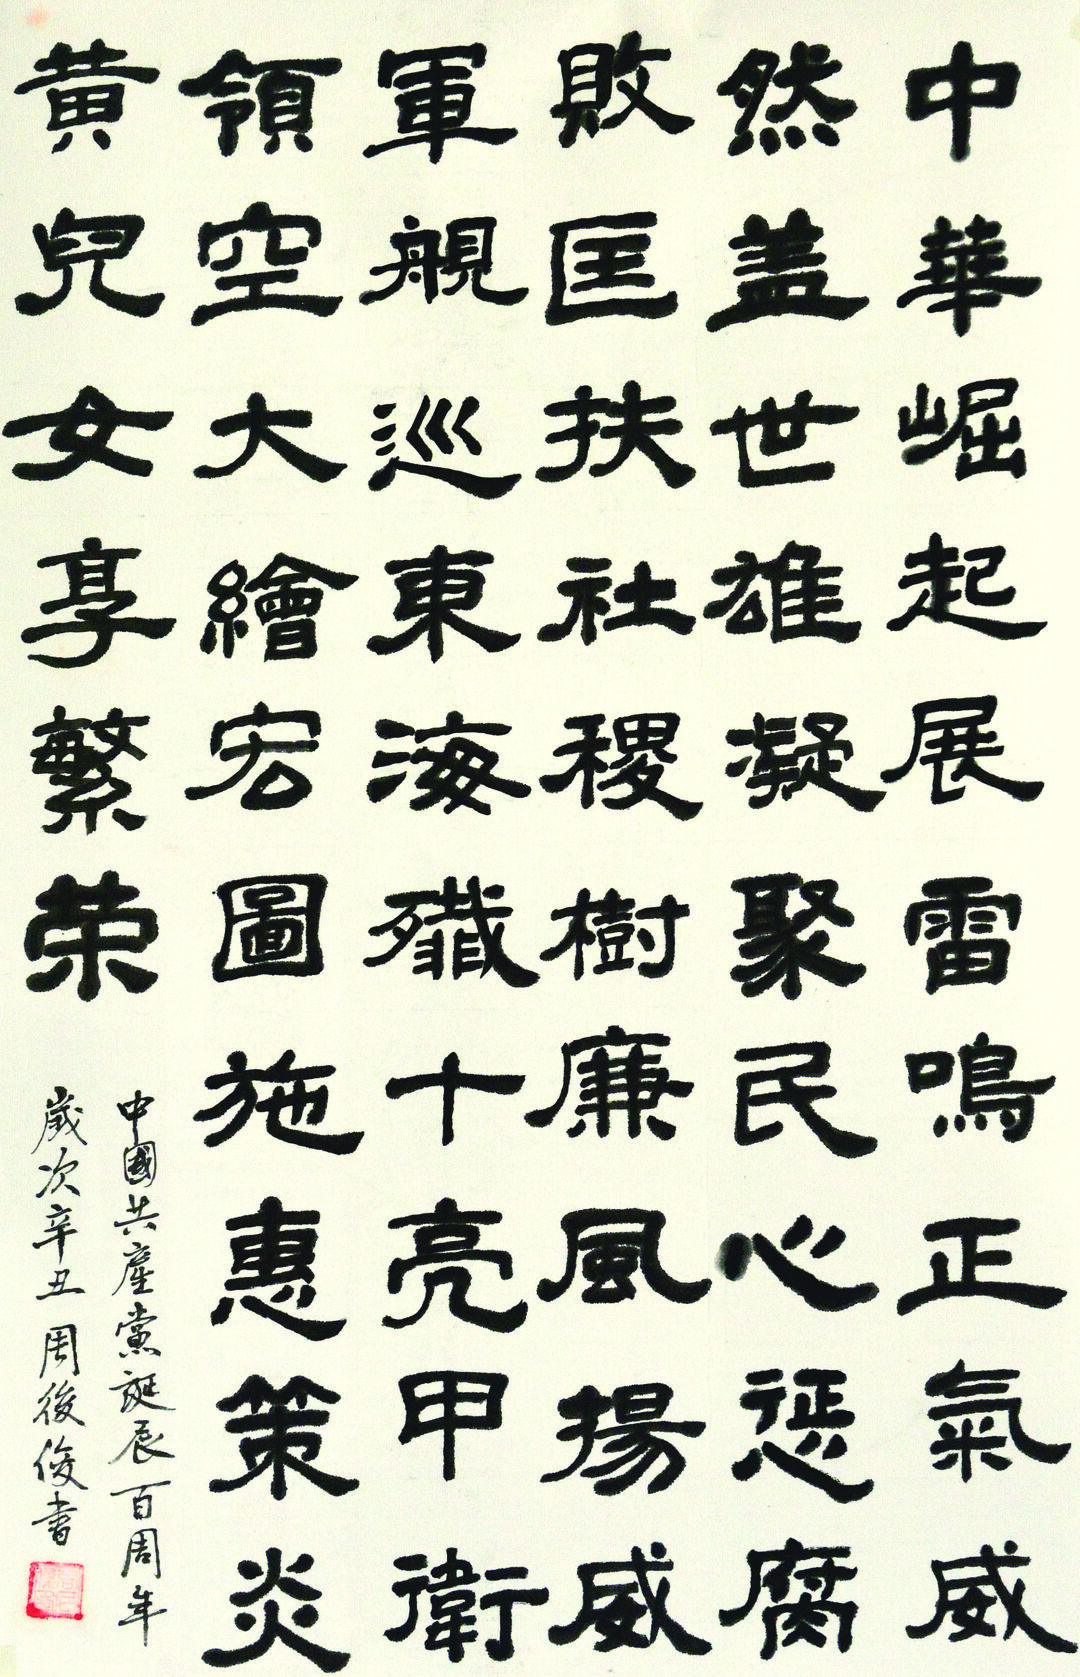 中華崛起展雷鳴正氣威
然蓋世雄凝聚民心惩腐
敗匡扶社稷樹廉風揚威
軍艦巡東海殲十亮甲衛
領空大繪宏圖施惠策炎
黄兒女享繁荣
中國共產黨誕辰百周年
歲次辛丑周後俊書